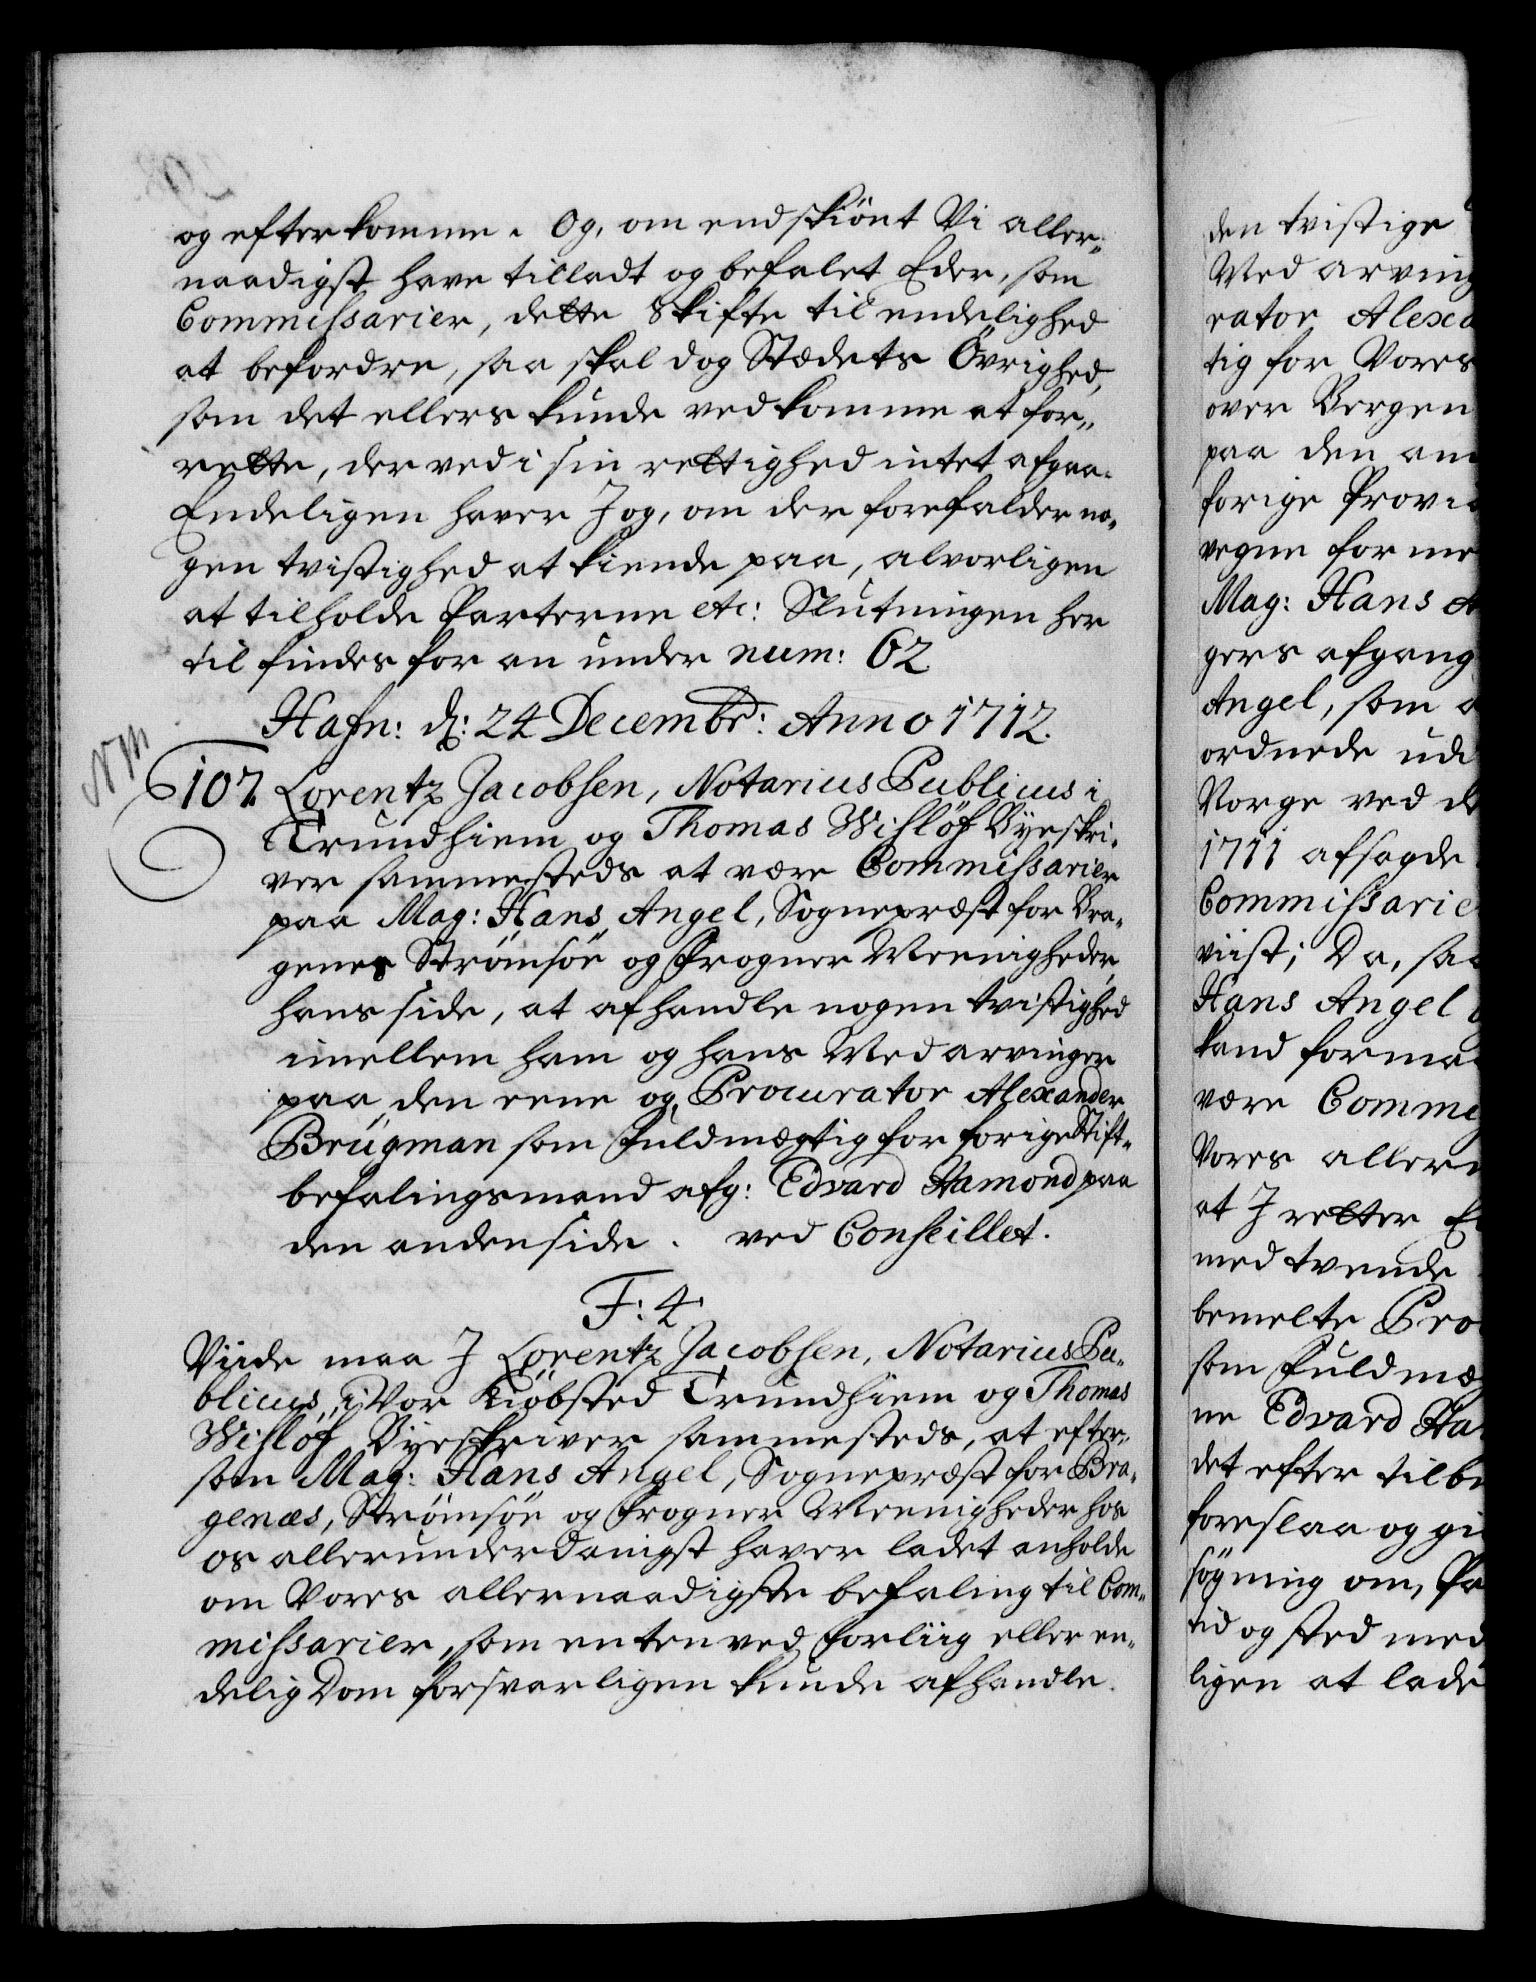 og efterkomme. Og, om endskiönt Vi aller„
naadigst have tilladt og befalet Eder, som
Commissarier, dette Skifte til endelighed
at befordre, saa skal dog Stædets Övrighed,
som det ellers kunde vedkomme at for„
rette, derved i sin rettighed intet afgaa.
Endeligen haver J og, om der forefalder no„
gen tvistighed at kiende paa, alvorligen
at tilholde Parterne etc: Slutningen her
til findes for an under num: 62
Hafn: d: 24 Decembr: Anno 1712.
NB
107. Lorentz Jacobsen, Notarius Publicus i
Trundhiem og Thomas Wislöf Byeskri„
ver sammesteds at være Commissarier
paa Mag: Hans Angel, Sognepræst for Bra„
genes Strömsöe og Frogner Meenigheder,
hans side, at afhandle nogen tvistighed
imellem ham og hans Medarvinger
paa den eene og Procurator Alexander
Brügman som Fuldmægtig for forige Stift„
befalingsmand afg: Edvard Hamond paa
den anden side. ved Conseillet.
F: 4.
Viide maa J Lorentz Jacobsen, Notarius Pu„
blicus i Vor Kiöbsted Trundhiem og Thomas
Wislöf Byeskriver sammesteds, at efter„
som Mag: Hans Angel, Sognepræst for Bra„
genæs, Strömsöe og Frogner Meenigheder hos
os allerunderdanigst haver ladet anholde
om Vores allernaadigste befaling til Com„
missarier, som enten ved Forliig eller en„
delig Dom forsvarligen kunde afhandle
den tvistige
Med arving
rator Alexa
tig for Vores
over Bergen
paa den an
forige Provi
vegne for me
Mag: Hans A
gers afgang
Angel, som
ordnede udi
Norge ved d
1711 afsagde
Commissarie
viist; Da, saa
Hans Angel
kand forma
være Commi
Vores aller
at J retter E
med tvende
bemelte Pro
som Fuldmæ
ne Edvard Ha
det efter tilb
foreslaa og gi
sögning om, Pa
tid og sted med
ligen at lade